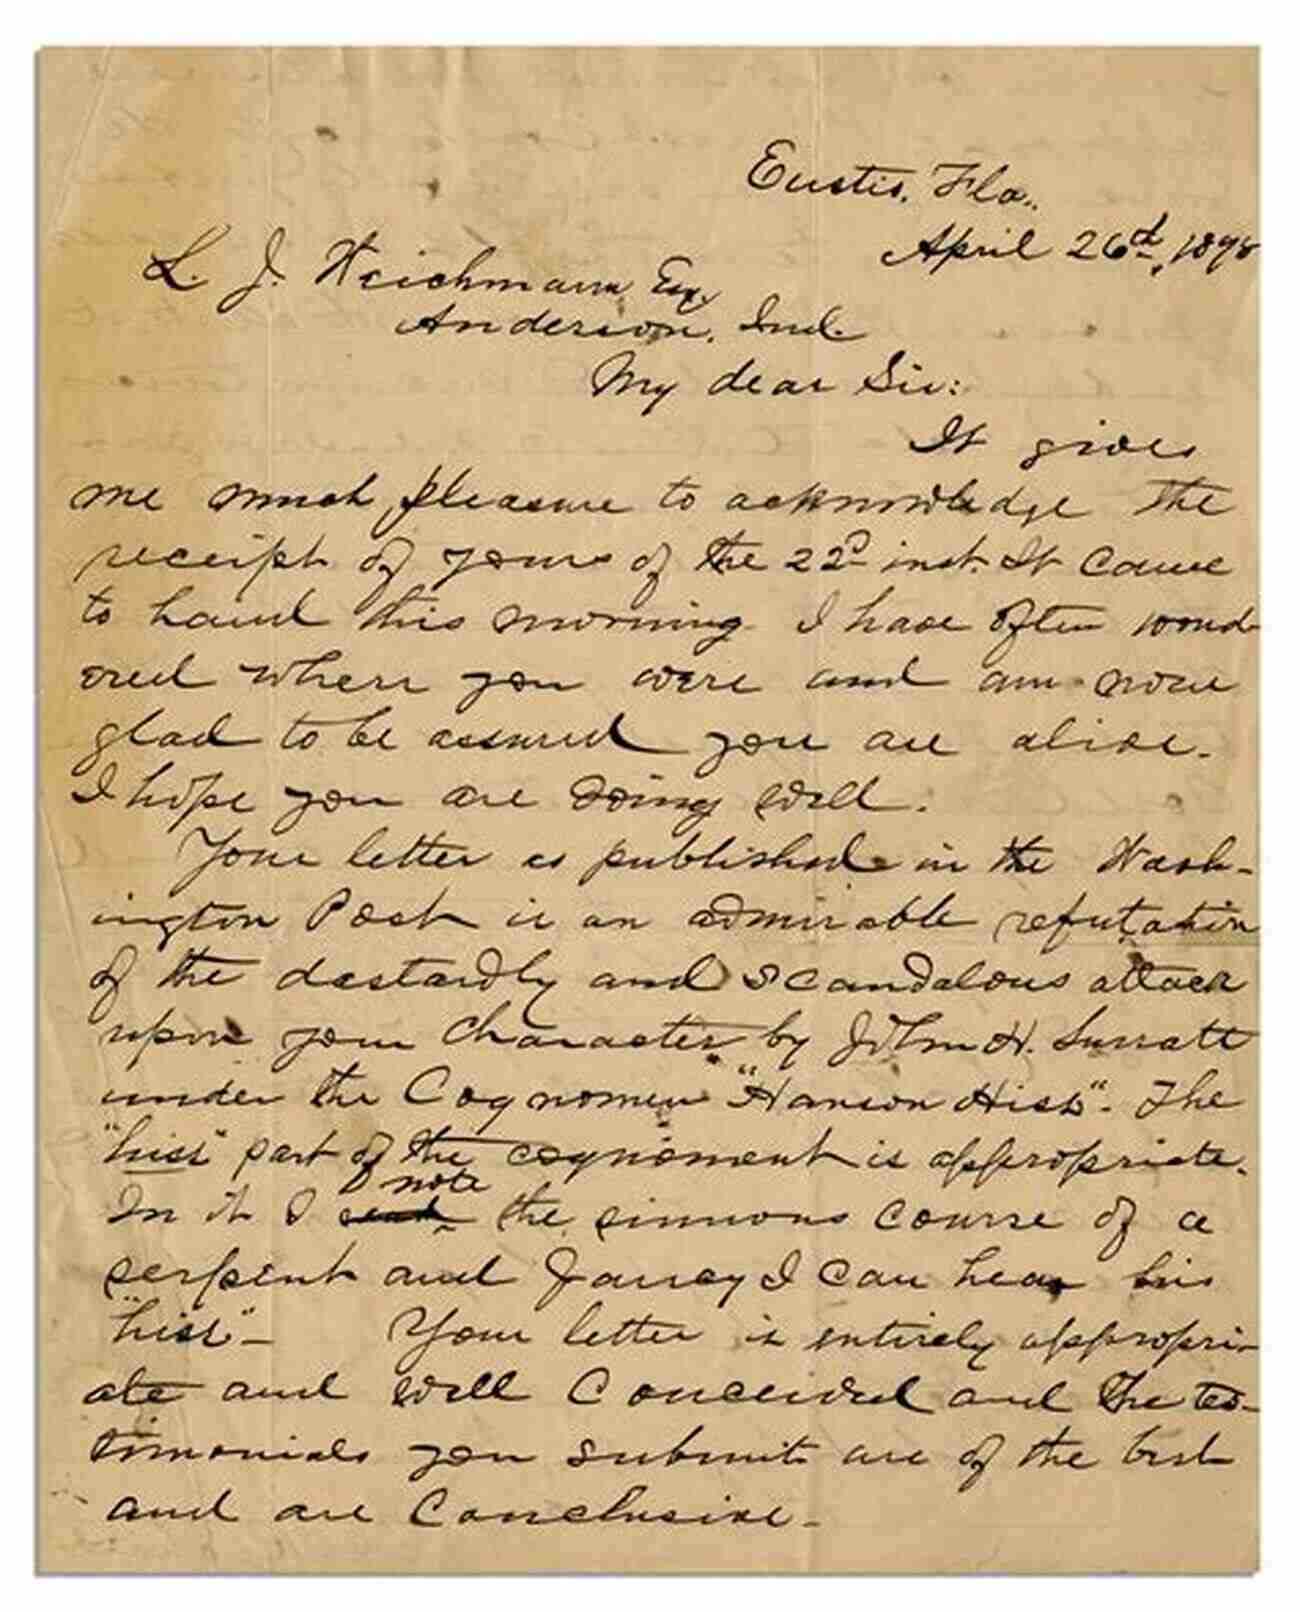 Eustis, Fla.,
April 26th, 1898
L. J. Weichmann Esq,
Anderson, Ind.
My dear Sir:
It gives
me much pleasure to acknowledge the
receipt of yours of the 22d inst. It came
to hand this morning. I have often wond-
ered where you were and am now
glad to be assured you are alive.
I hope you are doing well.
Your letter as published in the Wash-
ington Post is an admirable refutation
of the dastardly and scandalous attack
upon your character by John H. Surratt
under the Cognomen "Hanson Hiss". The
"hiss" part of the cognoment is appropriate.
note
In it I the sinuous course of a
serpent and fancy I can hear his
"hiss" - Your letter is entirely appropri-
ate and well conceived and the tes-
timonials you submit are of the best
and are conclusive.